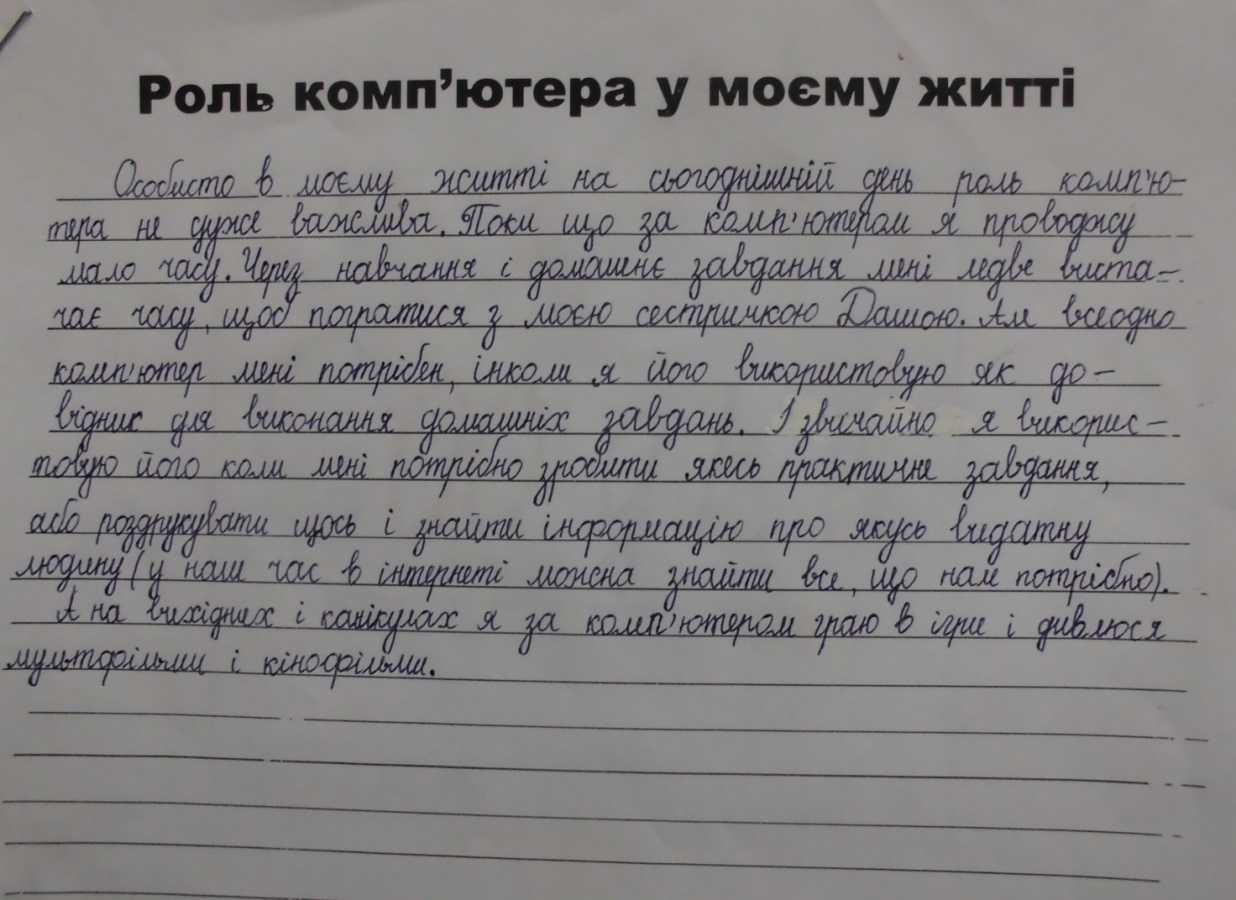 Роль комп’ютера у моєму житті
Особисто в моєму житті на сьогоднішній день роль комп'ю-
тера не дуже важлива. Поки що за комп'ютером я проводжу
мало часу. Через навчання і домашнє завдання мені ледве виста-
чає часу, щоб погратися з моєю сестричкою Дашою. Але всеодно
комп'ютер мені потрібен, інколи я його використовую як до-
відник для виконання домашніх завдань. І звичайно я викорис-
товую його коли мені потрібно зробити якесь практичне завдання,
або роздрукувати щось і знайти інформацію про якусь видатну
людину (у наш час в інтернеті можна знайти все, що нам потрібно).
А на вихідних і канікулах я за комп'ютером граю в ігри і дивлюся
мультфільми і кінофільми.